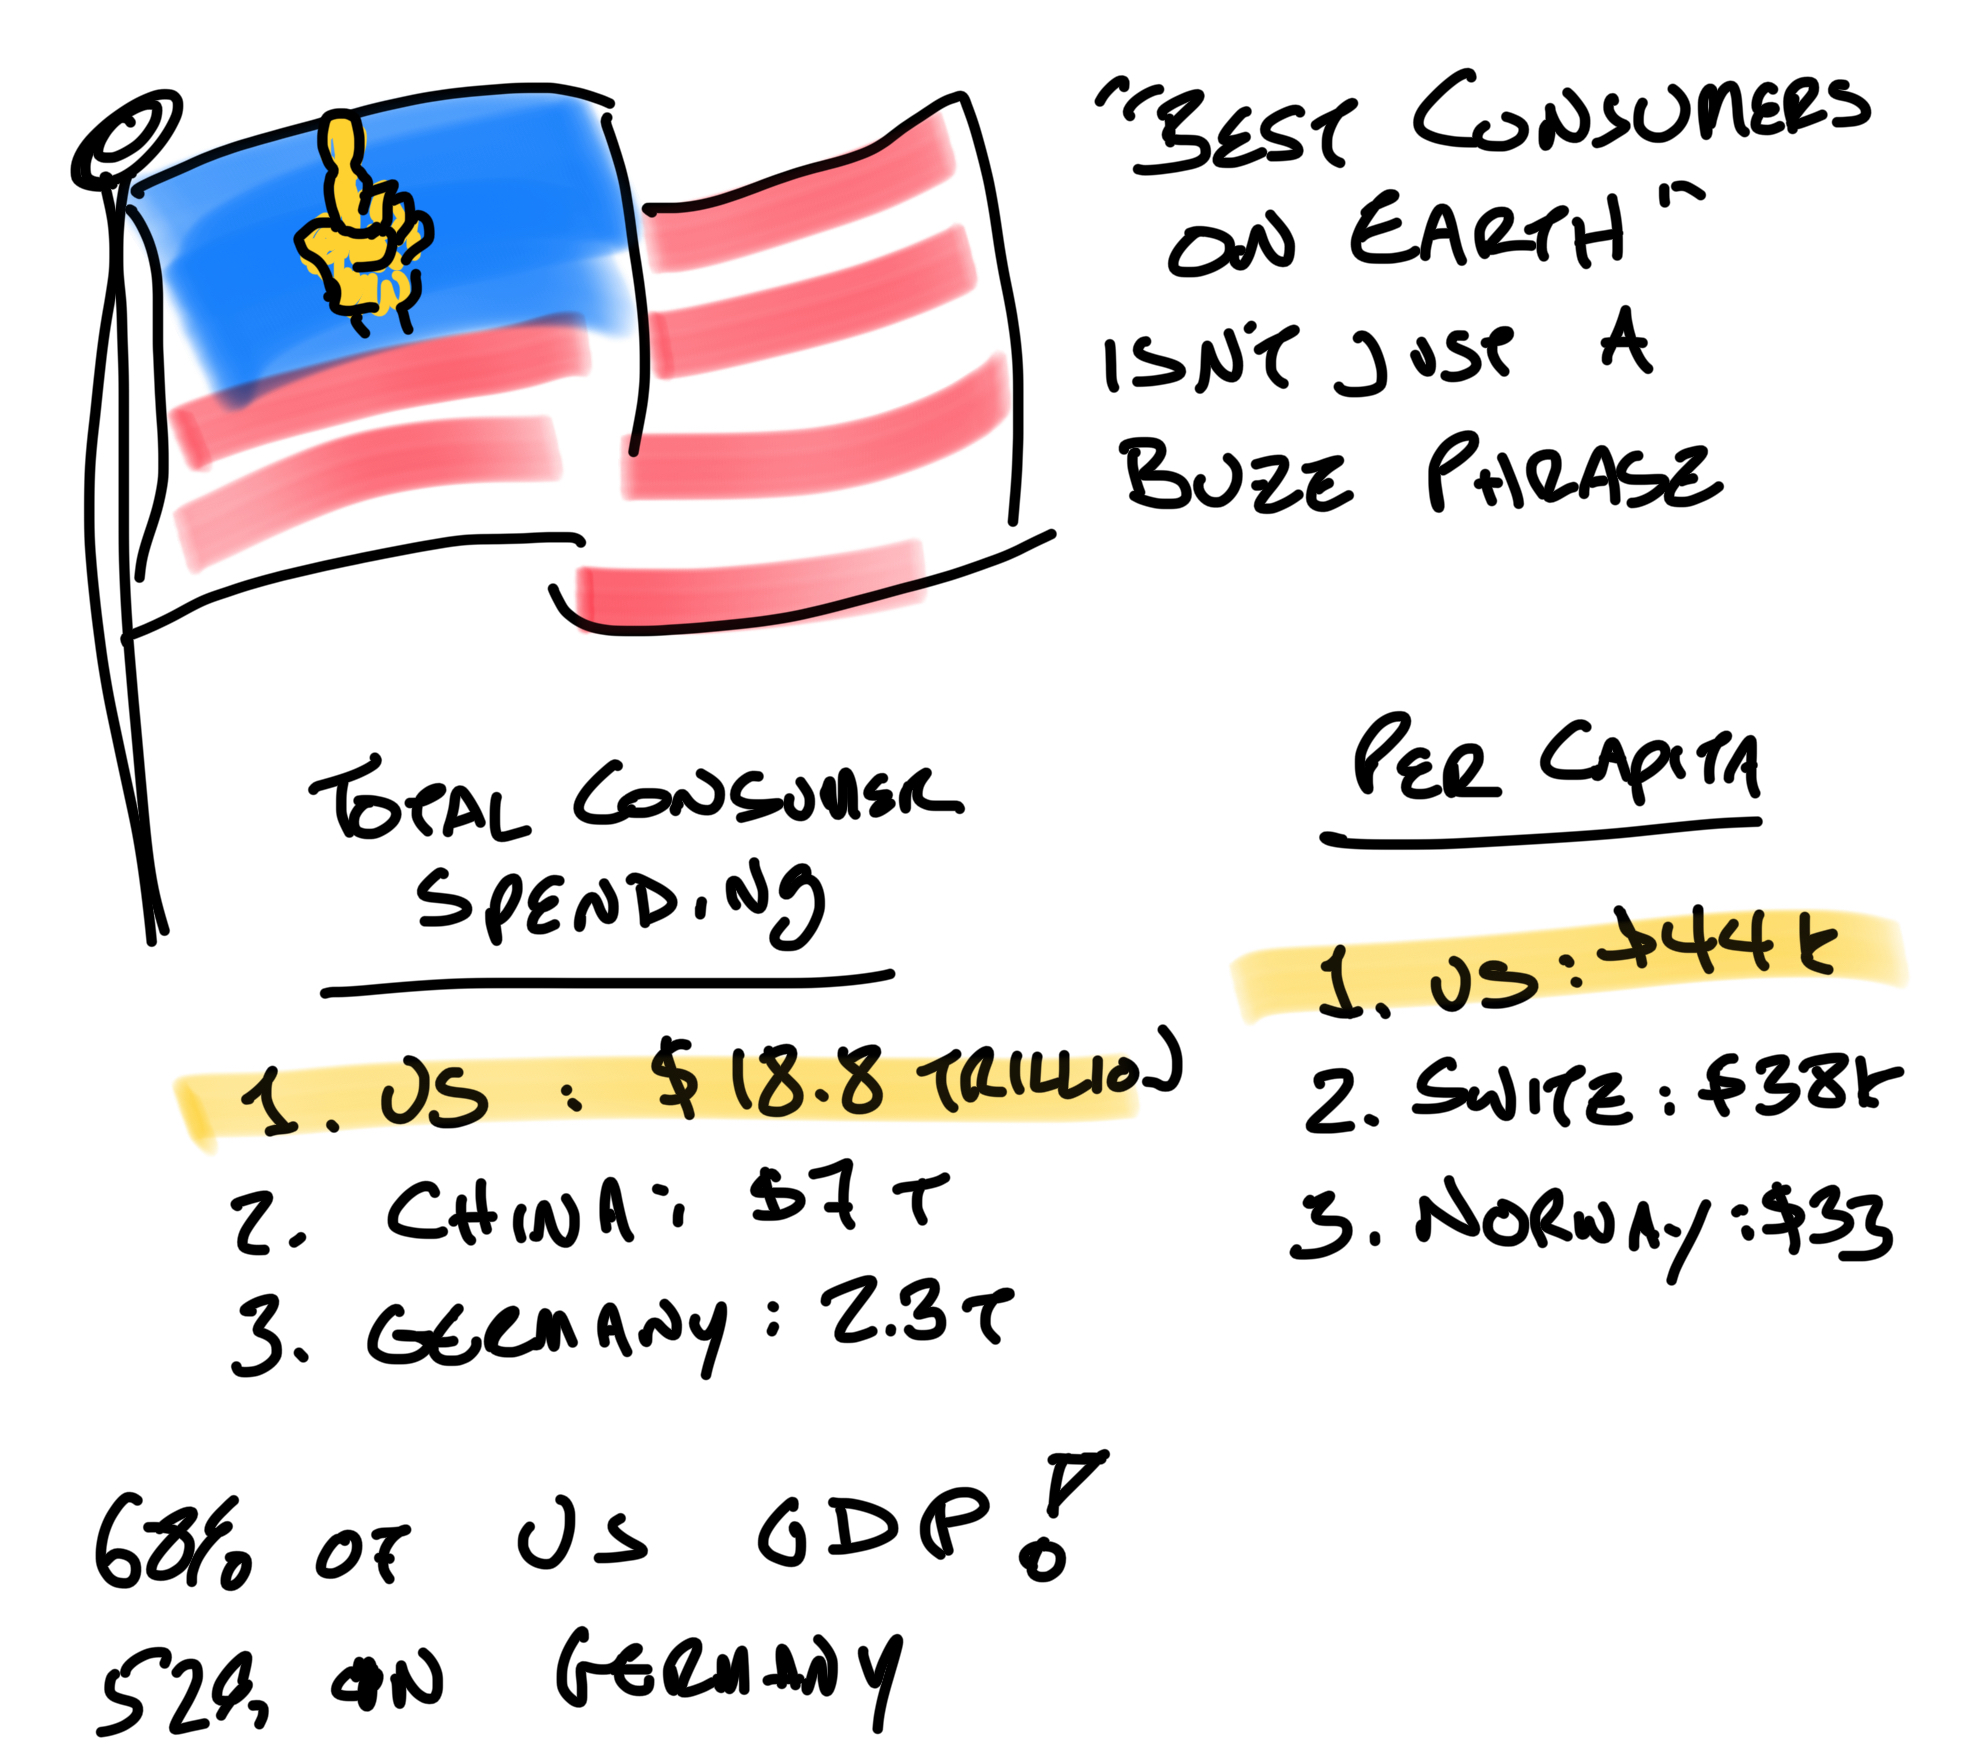 "BEST CONSUMERS
ON EARTH"
ISN'T JUST A
BUZZ PHRASE
TOTAL CONSUMER
SPENDING
1. US : $18.8 TRILLION
2. CHINA : $7 T
3. GERMANY : 2.3T
PER CAPITA
1. US : $44k
2. SWITZ : $38k
3. NORWAY : $33
68% OF US GDP!
52% IN GERMANY